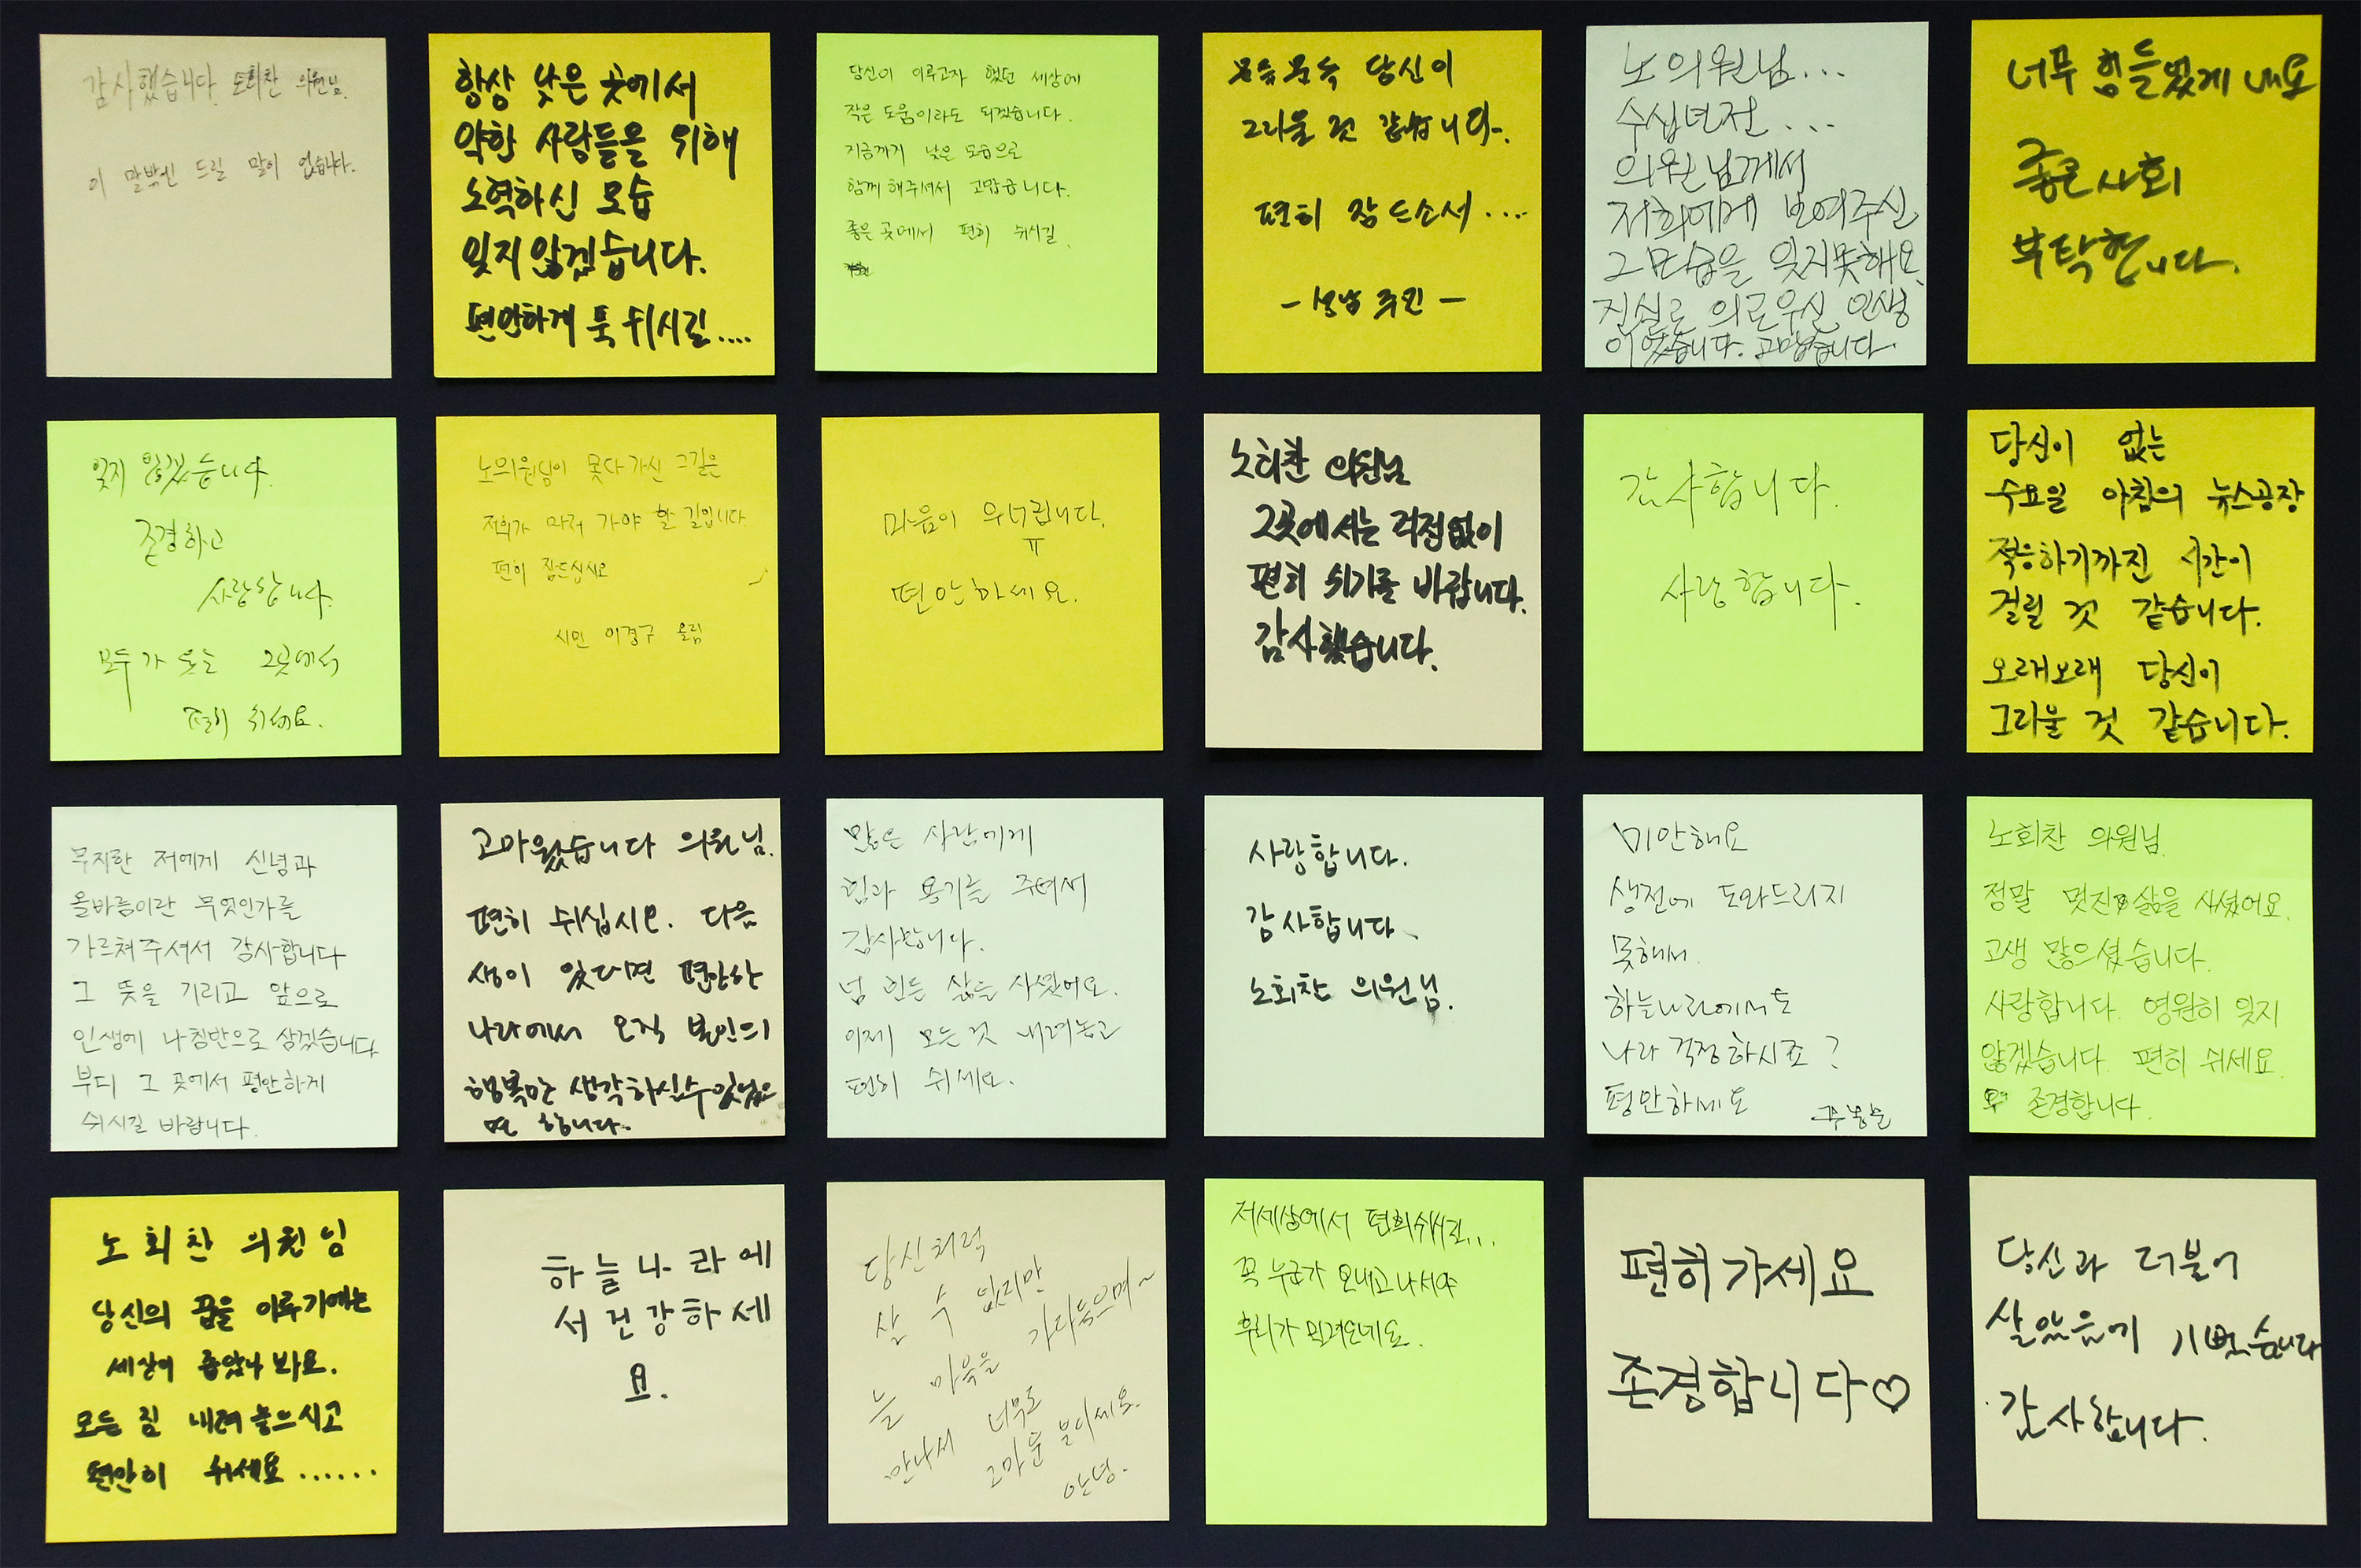 감사했습니다. 노회찬 의원님.
이 말밖엔 드릴 말이 없습니다.
항상 낮은 곳에서
약한 사람들을 위해
노력하신 모습
잊지않겠습니다.
편안하게 푹 쉬시길....
당신이 이루고자 했던 세상에
작은 도움이라도 되겠습니다.
지금까지 낮은 모습으로
함께 해주셔서 고맙습니다.
좋은 곳에서 편히 쉬시길.
문득문득 당신이
그리울 것 같습니다.
편히 잠드소서....
- 성남 주민 -
노의원님...
수십년전...
의원님께서
저희에게 보여주신
그 모습을 잊지못해요.
진실로 의로우신 인생
이었습니다. 고맙습니다.
너무 힘들었게 내요
좋은사회
부탁합니다.
잊지 않겠습니다.
존경하고
사랑합니다.
모두가 웃는 그곳에서
편히 쉬세요.
노의원님이 못다가신 그길은
저희가 마저 가야 할 길입니다.
편히 잠드십시요
시민 이경구 올림
마음이 무너집니다.
ㅠ
편안하세요.
노회찬 의원님
그곳에서는 걱정없이
편히 쉬기를 바랍니다.
감사했습니다.
감사합니다.
사랑합니다.
당신이 없는
수요일 아침의 뉴스공장
적응하기까진 시간이
걸릴 것 같습니다.
오래오래 당신이
그리울 것 같습니다.
무지한 저에게 신념과
올바름이란 무엇인가를
가르쳐주셔서 감사합니다
그 뜻을 기리고 앞으로
인생에 나침반으로 삼겠습니다
부디 그 곳에서 평안하게
쉬시길 바랍니다.
고마웠습니다 의원님.
편히 쉬십시오. 다음
생이 있다면 편안한
나라에서 오직 본인의
행복만 생각하실수있었으
면 합니다.
많은 사람에게
힘과 용기를 주셔서
감사합니다.
넘 힘든 삶을 사셨어요.
이제 모든것 내려놓고
편히 쉬세요.
사랑합니다.
감사합니다.
노회찬 의원님.
미안해요
생전에 도와드리지
못해서.
하늘나라에서도
나라 걱정하시죠?
평안하세요
노회찬 의원님.
정말 멋진 삶을 사셨어요.
고생 많으셨습니다.
사랑합니다. 영원히 잊지
않겠습니다. 편히 쉬세요.
존경합니다.
노회찬 의원님
당신의 꿈을 이루기에는
세상이 좁았나 봐요.
모든 짐 내려놓으시고
편안히 쉬세요......
하늘나라에
서 건강하세
요.
당신처럼
살 수 없지만
늘 마음을 가다듬으며~
만나서 너무도
고마운 분이세요.
안녕.
저세상에서 편희쉬시길...
꼭 누군가 보내고나서야
후회가 밀려오네요.
편히가세요
존경합니다♡
당신과 더불어
살았음에 기뻤습니다
감사합니다.